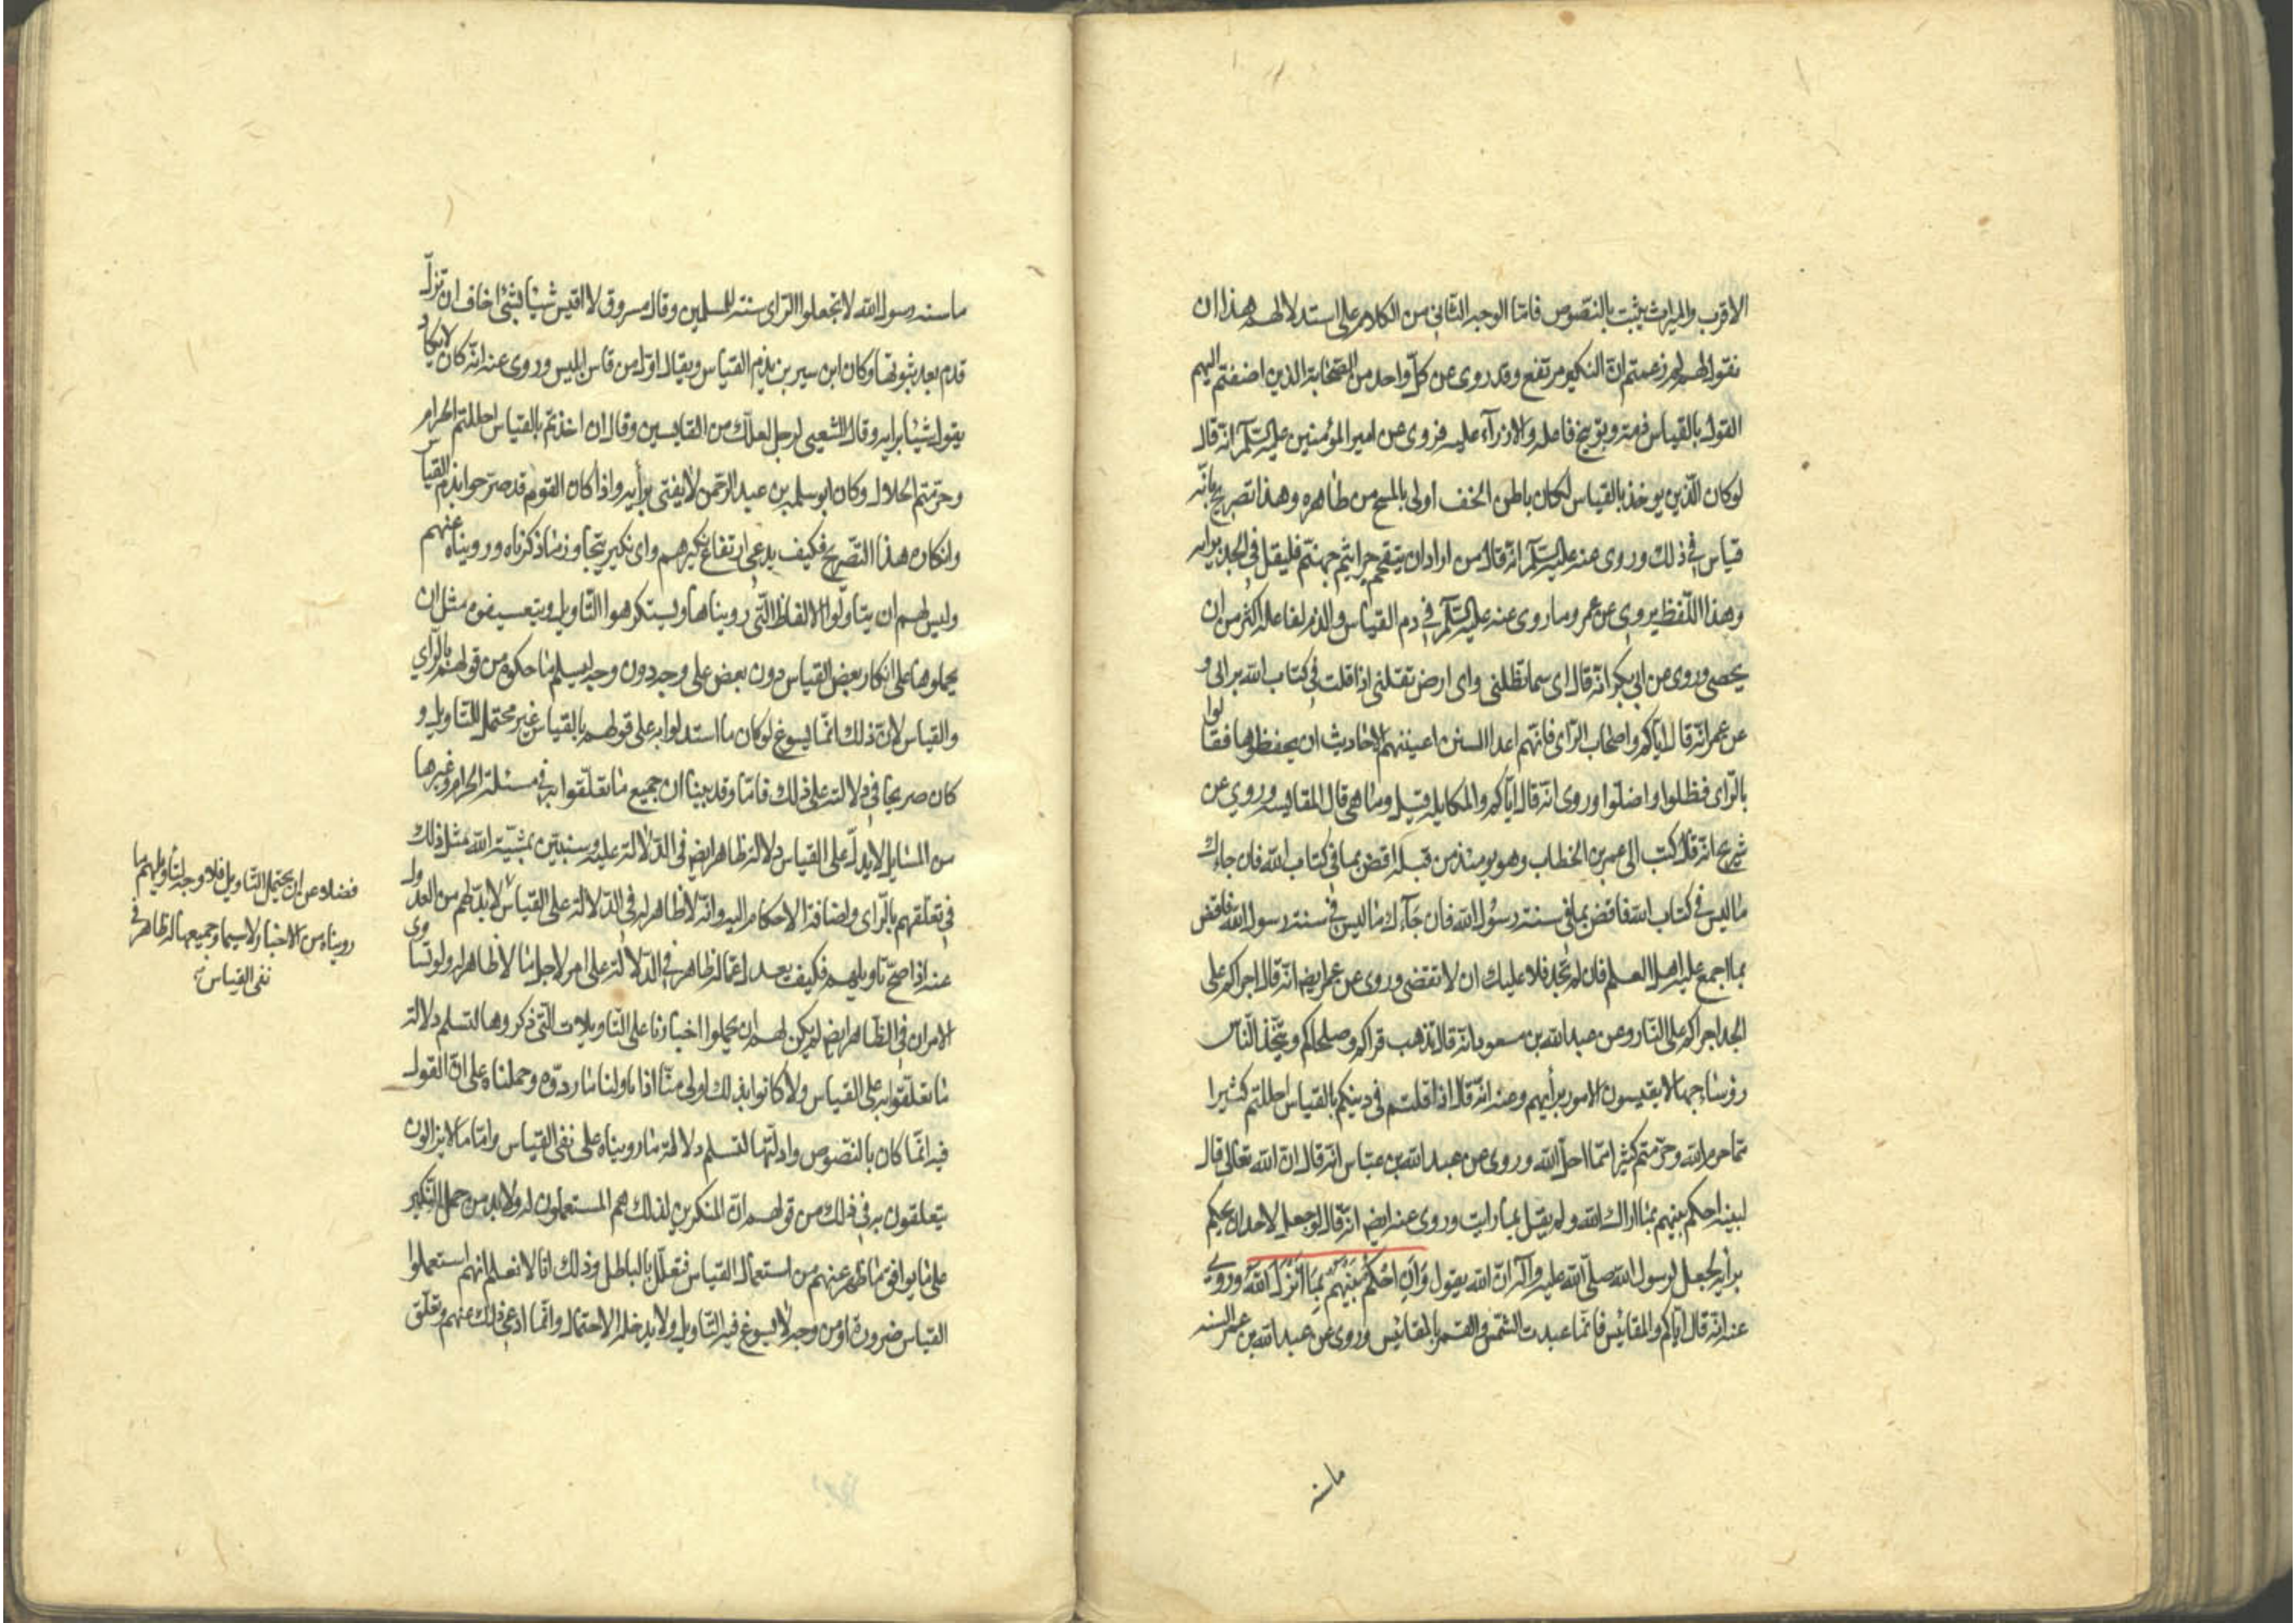 الاقرب والميراث يثبت بالنصوص فامّا الوجه الثّانى من الكلام على استدلالهم هذا ان
نقول لهم لم زعمتم انّ النكير مرتفع وقد روى عن كلّ واحد من الصّحابة الذين اضفتم اليهم
القول بالقياس ذمّه وتوبيخ فاعله والازرآء عليه فروى عن امير المؤمنين عليه السّلم انّه قال
لو كان الدّين يوخذ بالقياس لكان باطن الخف اولى بالمسح من ظاهره وهذا تصريح بانّه
قياس فى ذلك وروى عنه عليه السّلم انّه قال من اراد ان يتقحّم جراثيم جهنّم فليقل فى الجد برايه
وهذا اللّفظ يروى عن عمر وما روى عنه عليه السّلم فى ذم القياس والذم لفاعله اكثر من ان
يحصى وروى عن ابى بكر انّه قال اى سما تظلنى واى ارض تقلنى اذا قلت فى كتاب الله برايى و
عن عمر انّه قال ايّاكم واصحاب الرّاى فانّهم اعدا السنن اعيتهم الاحاديث ان يحفظوها فقالوا
بالرّاى فظلوا واضلّوا وروى انّه قال ايّاكم والمكايله قيل وما هى قال المقايسه وروى عن
شريح انّه قال كتب الى عمر بن الخطاب وهو يومئذ من قبله اقض بما فى كتاب الله فان جاءك
ما ليس فى كتاب الله فاقض بما فى سنة رسول الله فان جآءك ما ليس فى سنة رسول الله فاقض
بما اجمع عليه اهل العلم فان لم تجد فلا عليك ان لا تقضى وروى عن عمر ايض انّه قال اجراكم على
الجد اجراكم على النّار وعن عبد الله بن مسعود انّه قال يذهب قراكم وصلحاكم ويتّخذ النّاس
رؤسا جهالا يقيسون الامور برأيهم وعنه انّه قال اذا قلتم فى دينكم بالقياس احللتم كثيرا
ممّا حرم الله وحرّمتم كثيرا ممّا احلّ الله وروى عن عبد الله بن عبّاس انّه قال انّ الله تعالى قال
لنبيه احكم بينهم بما اراك الله ولم يقل بما رايت وروى عنه ايض انّه قال لو جعل لاحد ان يحكم
برأيه لجعل لرسول الله صلّى الله عليه وآله انّ الله يقول وَاَنِ احْكُمْ بَيْنَهُمْ بِمَا اَنْزَلَ اللّهُ وروى
عنه انّه قال ايّاكم والمقائيس فانّما عبدت الشّمس والقمر بالمقائيس وروى عن عبد الله بن عمر السنه
ما سنه
ما سنه رسول الله لا تجعلوا الرّاى سنة للمسلمين وقال مسروق لا اقيس شيئا بشئ اخاف ان تزلّ
قدم بعد ثبوتها وكان ابن سيرين يذم القياس ويقال اوّل من قاس ابليس وروى عنه انّه كان لا يكاد
يقول شيئا برايه وقال الشعبى لرجل لعلّك من القايسين وقال ان اخذتم بالقياس احللتم الحرام
وحرّمتم الحلال وكان ابو سلمه بن عبد الرّحمن لا يفتى برأيه واذا كان القوم قد صرّحوا بذم القياس
وانكاره هذا التّصريح فكيف يدعى ارتفاع نكيرهم واى نكير يتجاوز ما ذكرناه ورويناه عنهم
وليس لهم ان يتاوّلوا الالفاظ الّتى رويناها ويستكرهوا التّاويل ويتعسفوه مثل ان
يحملوها على انكار بعض القياس دون بعض على وجه دون وجه ليسلم ما حكوه من قولهم بالرّاى
والقياس لانّ ذلك انّما يسوغ لو كان ما استدلوا به على قولهم بالقياس غير محتمل للتّاويل و
كان صريحا فى دلالته على ذلك فامّا وقد بينا ان جميع ما تعلّقوا به فى مسئلة الحرام وغيرها
من المسايل لا يدلّ على القياس دلالة ظاهر ايض فى الدّلالة عليه وسنبين بمشيّة الله مثل ذلك
فى تعلّقهم بالرّاى واضافة الاحكام اليه وانّه لا ظاهر له فى الدّلالة على القياس لا بدّ لهم من العدول
عنه اذا صحّ تاويلهم فكيف يعدل عمّا له ظاهر فى الدّلالة على امر لاجل ما لا ظاهر له ولو تساوى
الامران فى الظّاهر ايض لم يكن لهم ان يحملوا اخبارنا على التّاويلات الّتى ذكروها لتسلم دلالة
ما تعلّقوا به على القياس ولا كانوا بذلك اولى منّا اذا تاولنا ما ردّوه وحملناه على انّ القول
فيه انّما كان بالنّصوص وادلّتها لتسلم دلالة ما رويناه على نفى القياس وامّا ما لا يزالون
يتعلقون به فى ذلك من قولهم انّ المنكرين لذلك هم المستعملون له ولا بد من حمل النّكير
على ما يوافق ما ظهر عنهم من استعمال القياس فتعلّل بالباطل وذلك انّا لا نعلم انهم استعملوا
القياس ضرورة او من وجه لا يسوغ فيه التّاويل ولا يدخله الاحتمال وانّما ادعى ذلك عنهم وتعلّق
فضلا عن ان يحتمل التّاويل فلا وجه لتأويلهم ما
رويناه من الاخبار لا سيما وجميعها له ظاهر فى
نفى القياس